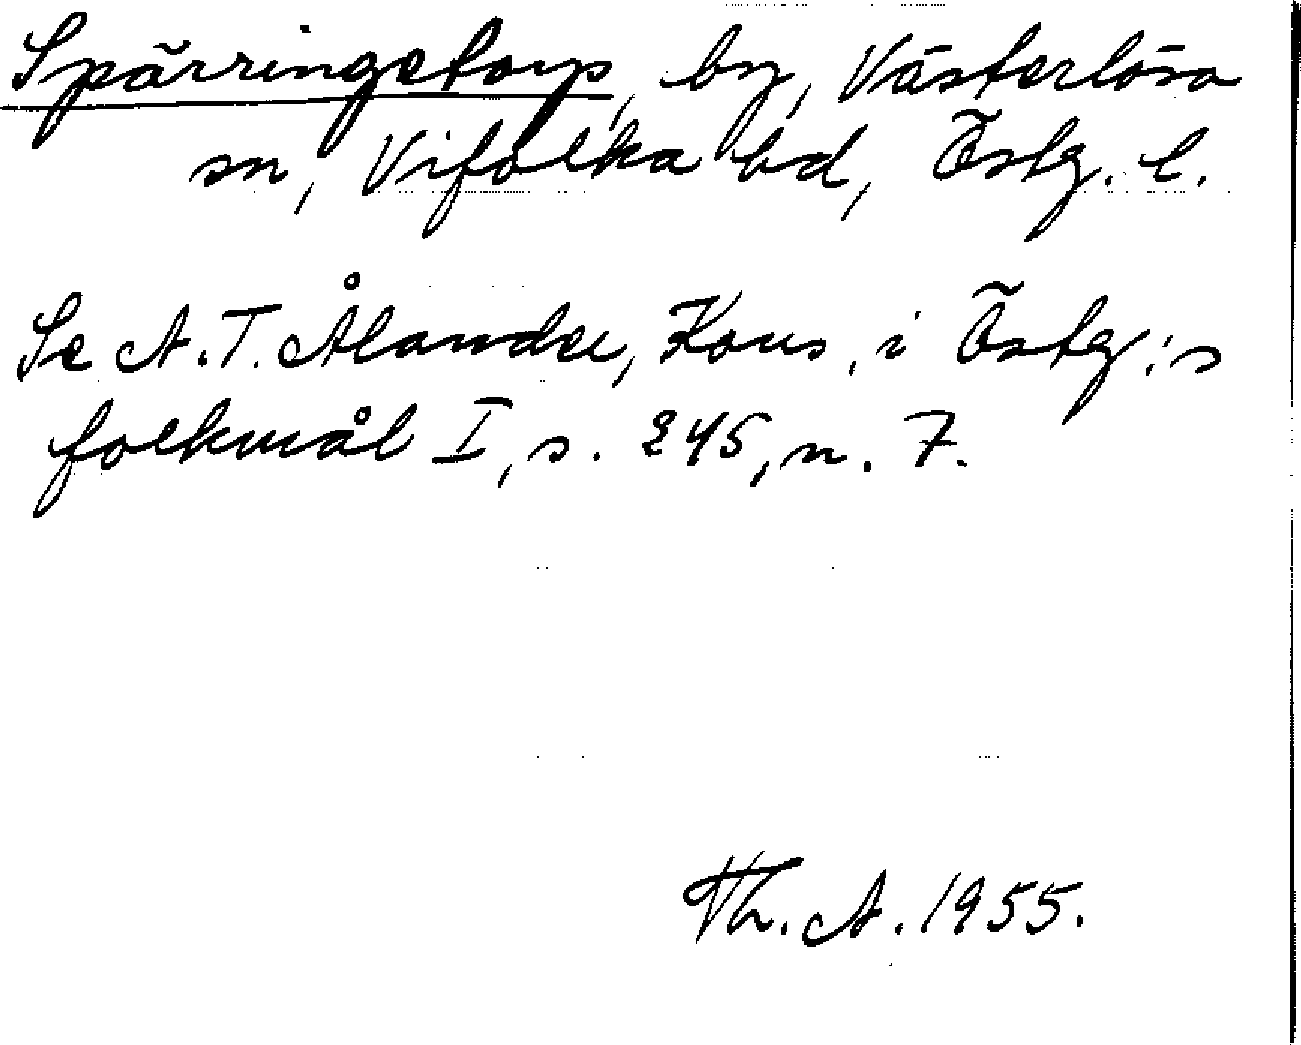 Spärringetorp, by, Västerlösa
sn, Vifolka hd, Östg. l.
Se A.T. Ålander, Kons. i Östg:s
folkmål I, s. 245, n. 7.
Th. A. 1955.